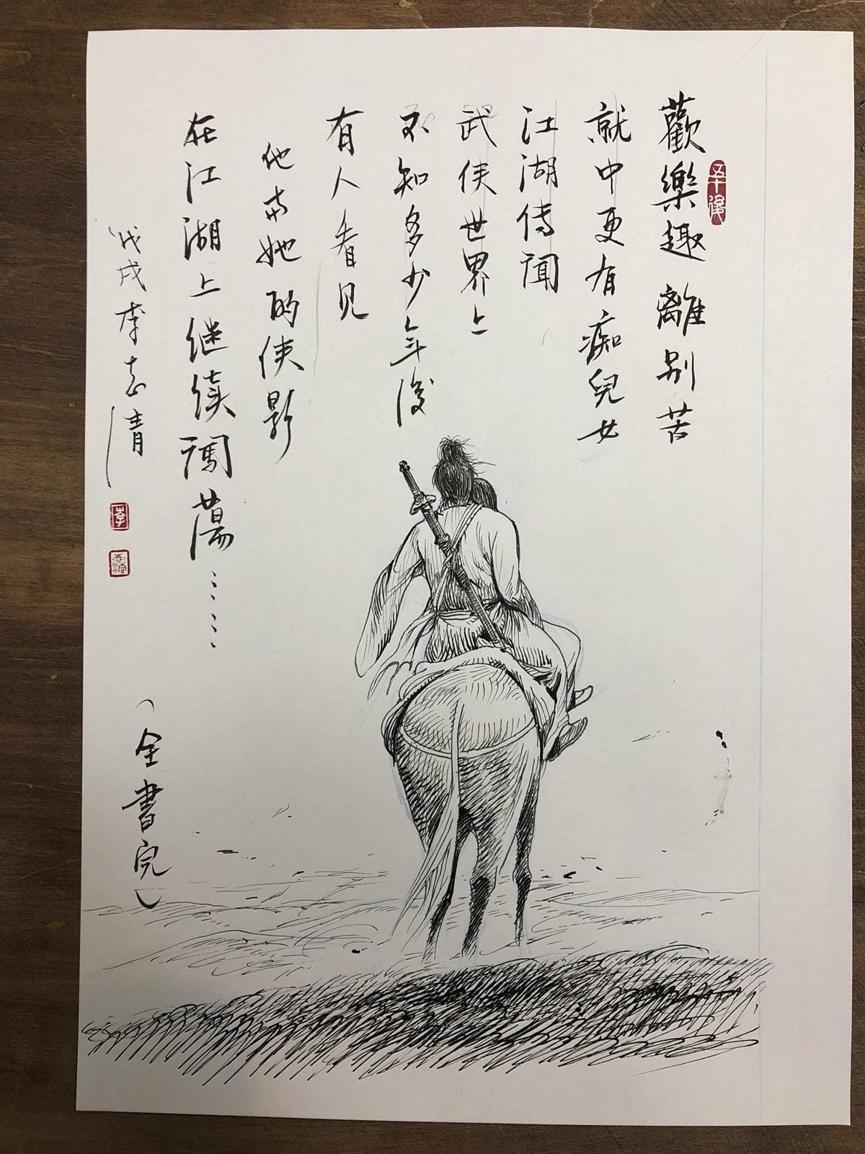 歡樂趣 離別苦
就中更有痴兒女
江湖傳聞
武俠世界上
不知多少年後
有人看見
他与她的俠影
在江湖上继续闖蕩……
戊戌 李志清
李
(全書完)